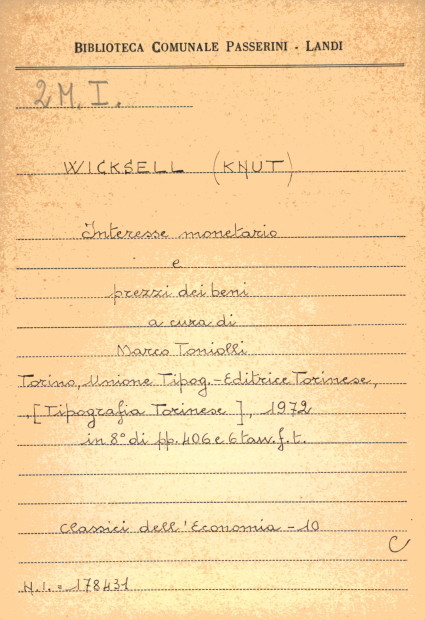 BIBLIOTECA COMUNALE PASSERINI - LANDI
2 M. I.
WICKSELL (KNUT)
Interesse monetario
e
prezzi dei beni
a cura di
Marco Toniolli
Torino, Unione Tipog.-Editrice Torinese,
.[Tipografia Torinese], 1972
in 8° di pp. 406 e 6 tav. f. t.
Classici dell'Economia - 10
C
N.I. = 178431